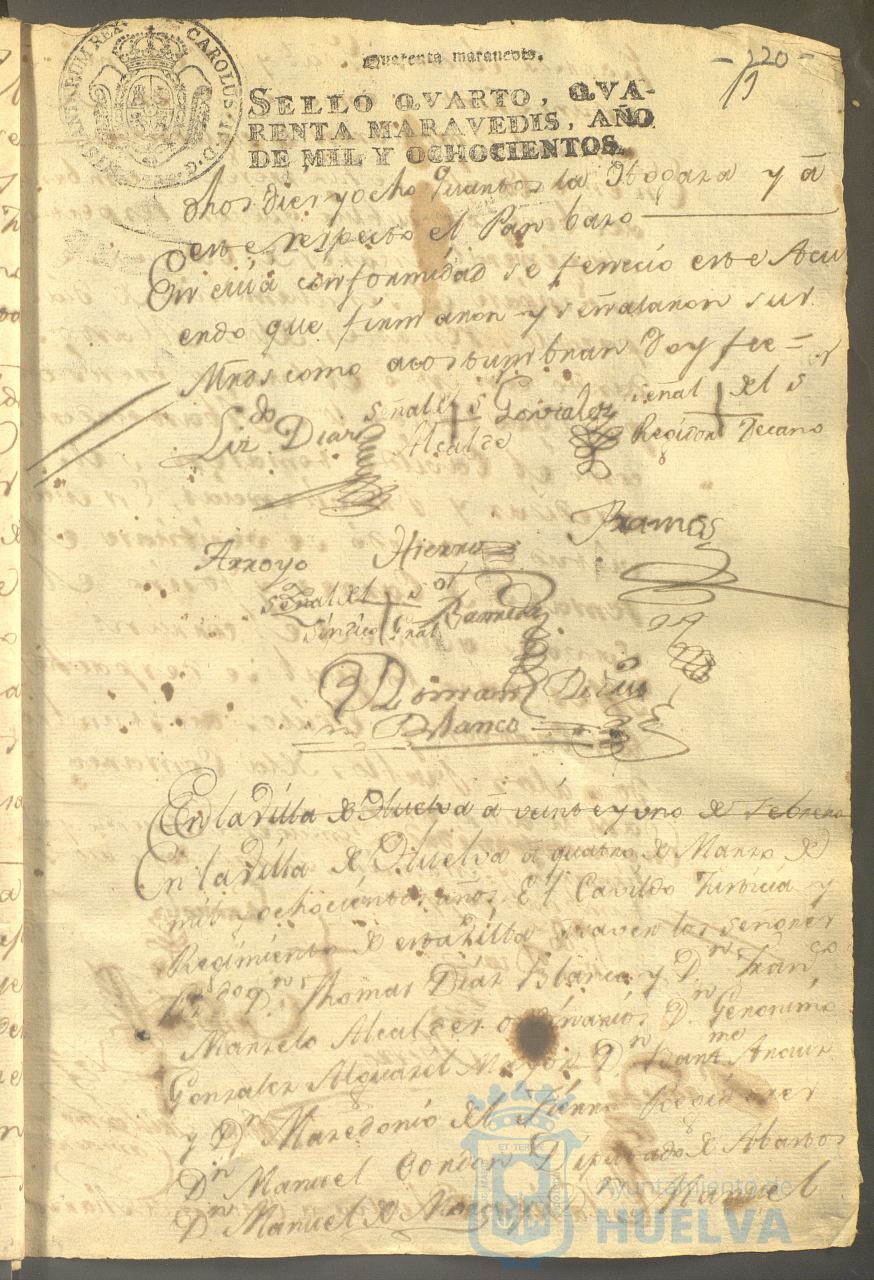 HISPANIARUM REX
CAROLUS IV D. G.
Quarenta maravedis.
220
19
SELLO QVARTO, QVA-
RENTA MARAVEDIS, AÑO
DE MIL Y OCHOCIENTOS.
dhos dier yocho quartos la Hogaza y á
este respecto el Pan bazo
En cuia conformidad se fenecio este Acu
erdo que firmaron y señalaron sus
Mrds como acostumbran doy fee =
Lizdo Diaz
señal del sr Gonzalez
Alcalde
señal del sr
Rejidor Decano
Arroyo
Hierro
Ramos
señal del sor
Sindico Gral
Blanco
En la Villa de Huelva á veinte y uno de Febrero
En la Villa de Huelva á quatro de Marzo de
mil y ochocientos años. El Cavildo Justicia y
Regimiento de esta Villa saven los señores
Dn Thomas Diaz Blanco y Dn Franco
Manzelo Alcaldes ordinarios Dn Geronimo
Gonzalez Alguazil Mayor Dn
y Dn Mazedonio del Hierro Regidores
Dn Manuel Gordon Diputado de Abastos
Dn Manuel de Manuel
Ayuntamiento de
HUELVA